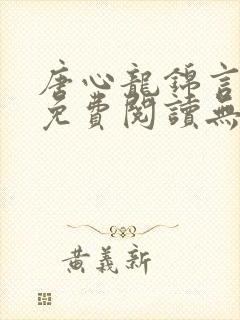 唐心龍錦言
免費閱讀無
黃義新